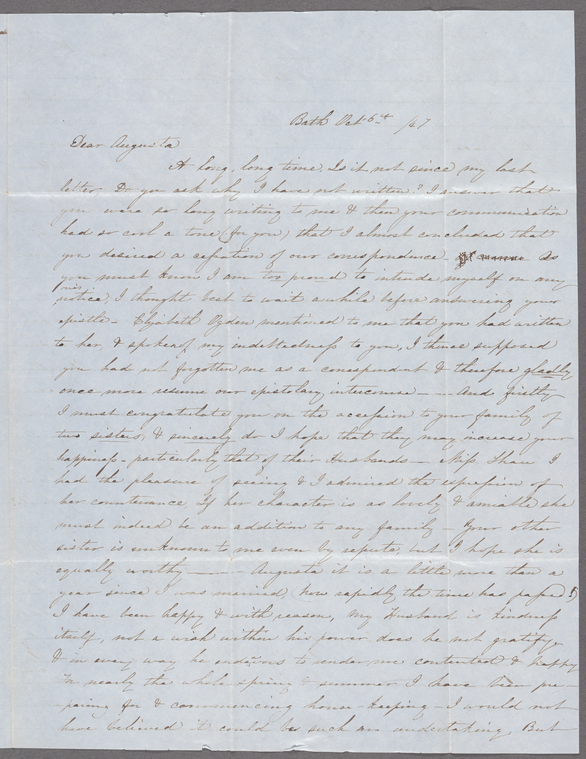 Bath Oct 6th /47
Dear Augusta
A long, long time, Is it not since my last
letter. Do you ask why I have not written? I answer that
you were so long writing to me & then your communication
had so cool a tone (for you) that I almost concluded that
you desired a cessation of our correspondence - As
you must know I am too proud to intrude myself on any
notice, I thought best to wait a while before answering your
epistle - Elizabeth Ogden mentioned to me that you had written
to her, & spoken of my indebtedness to you, I thence supposed
you had not forgotten me as a correspondent & therefore gladly
once more resume our epistolary intercourse - - And firstly
I must congratulate you on the accession to your family of
two sisters, & sincerely do I hope that they may increase your
happiness - particularly that of their Husbands - Miss Shaw I
had the pleasure of seeing & I admired the expression of
her countenance if her character is as lovely & amiable she
must indeed be an addition to any family - Your other
sister is unknown to me even by repute, but I hope she is
equally worthy - - Augusta it is a little more than a
year since I was married, how rapidly the time has passed
I have been happy & with reason, my Husband is kindness
itself, not a wish within his power does he not gratify
& in every way he endeavors to render me contented & happy
In nearly the whole spring & summer I have been pre-
paring for & commencing house-keeping - I would not
have believed it could be such an undertaking, But